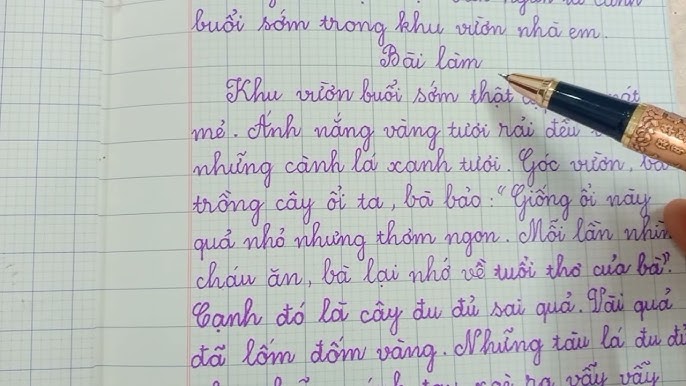 buổi sớm trong khu vườn nhà em.
Bài làm
Khu vườn buổi sớm thật mát
mẻ. Ánh nắng vàng tươi rải đều
những cành lá xanh tươi. Góc vườn, bà
trồng cây ổi ta, bà bảo: "Giống ổi này
quả nhỏ nhưng thơm ngon. Mỗi lần nhìn
cháu ăn, bà lại nhớ về tuổi thơ của bà".
Cạnh đó là cây đu đủ sai quả. Vài quả
đã lốm đốm vàng. Những tàu lá đu đủ
ra vẫy vẫy